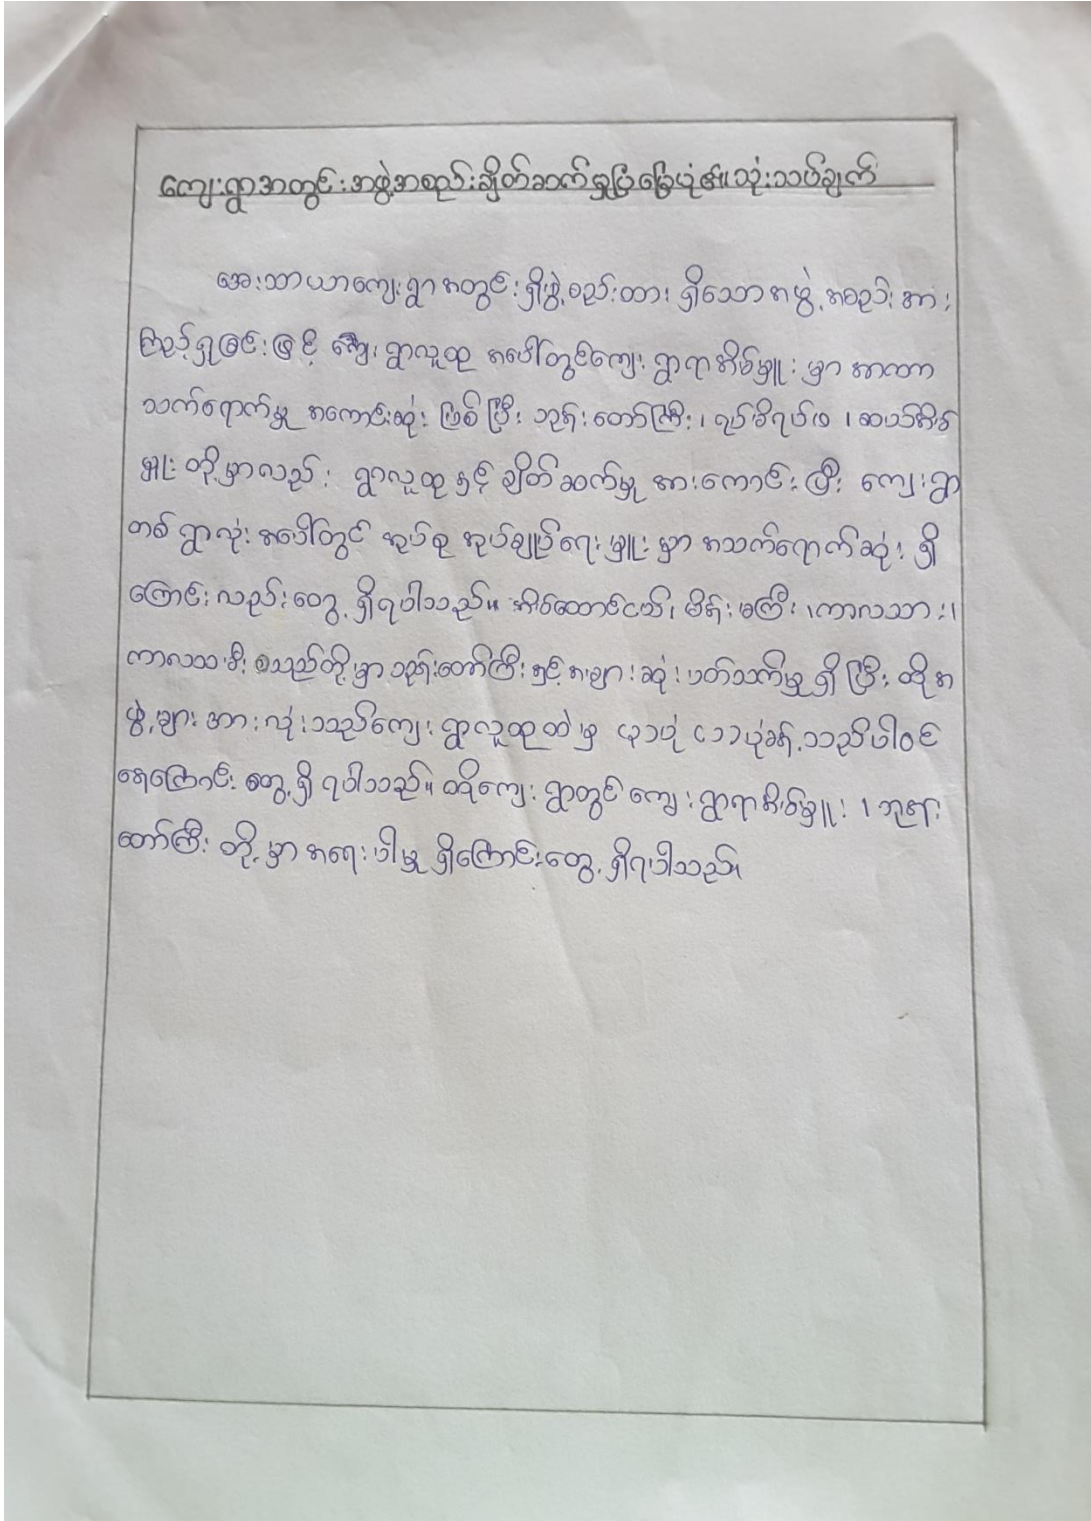 ကျေးရွာအတွင်းအဖွဲ့အစည်းချိတ်ဆက်မှုပြမြေပုံ၏သုံးသပ်ချက်
အေးသာယာကျေးရွာအတွင်းရှိဖွဲ့စည်းထား ရှိသောအဖွဲ့အစည်းအား
ကြည့်ရှုခြင်းဖြင့် ကျေးရွာလူထု အပေါ်တွင်ကျေးရွာရာအိမ်မှူးမှာ အာဏာ
သက်ရောက်မှု အကောင်းဆုံး ဖြစ်ပြီး ဘုန်းတော်ကြီး၊ ရပ်မိရပ်ဖ ၊ ဆယ်အိမ်
မှူးတို့မှာလည်း ရွာလူထုနှင့် ချိတ်ဆက်မှု အားကောင်းပြီး ကျေးရွာ
တစ်ရွာလုံးအပေါ်တွင် အုပ်စု အုပ်ချုပ်ရေးမှူးမှာ အသက်ရောက်ဆုံး ရှိ
ကြောင်းလည်းတွေ့ရှိရပါသည်။ အိမ်ထောင်ငယ်၊ မိန်းမကြီး ၊ကာလသား၊
ကာလသမီး စသည်တို့မှာ ဘုန်းတော်ကြီးနှင့်အများဆုံးပတ်သက်မှုရှိပြီး ထိုအ
ဖွဲ့များအားလုံးသည်ကျေးရွာလူထုထဲမှ ပုံသဏ္ဍာန်သည်ပါဝင်
နေကြောင်းတွေ့ရှိရပါသည်။ ထိုကျေးရွာတွင် ကျေးရွာရာအိမ်မှူး ၊ ဘုန်း
တော်ကြီးတို့မှာ အရေးပါမှုရှိကြောင်းတွေ့ရှိရပါသည်။